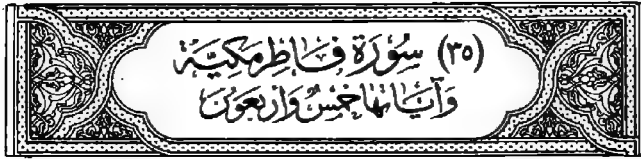 (٣٥) سُورَة فَاطِر مَكيَّة
وَآيَاتهَا خَمْسٌ وَأَربَعُونَ